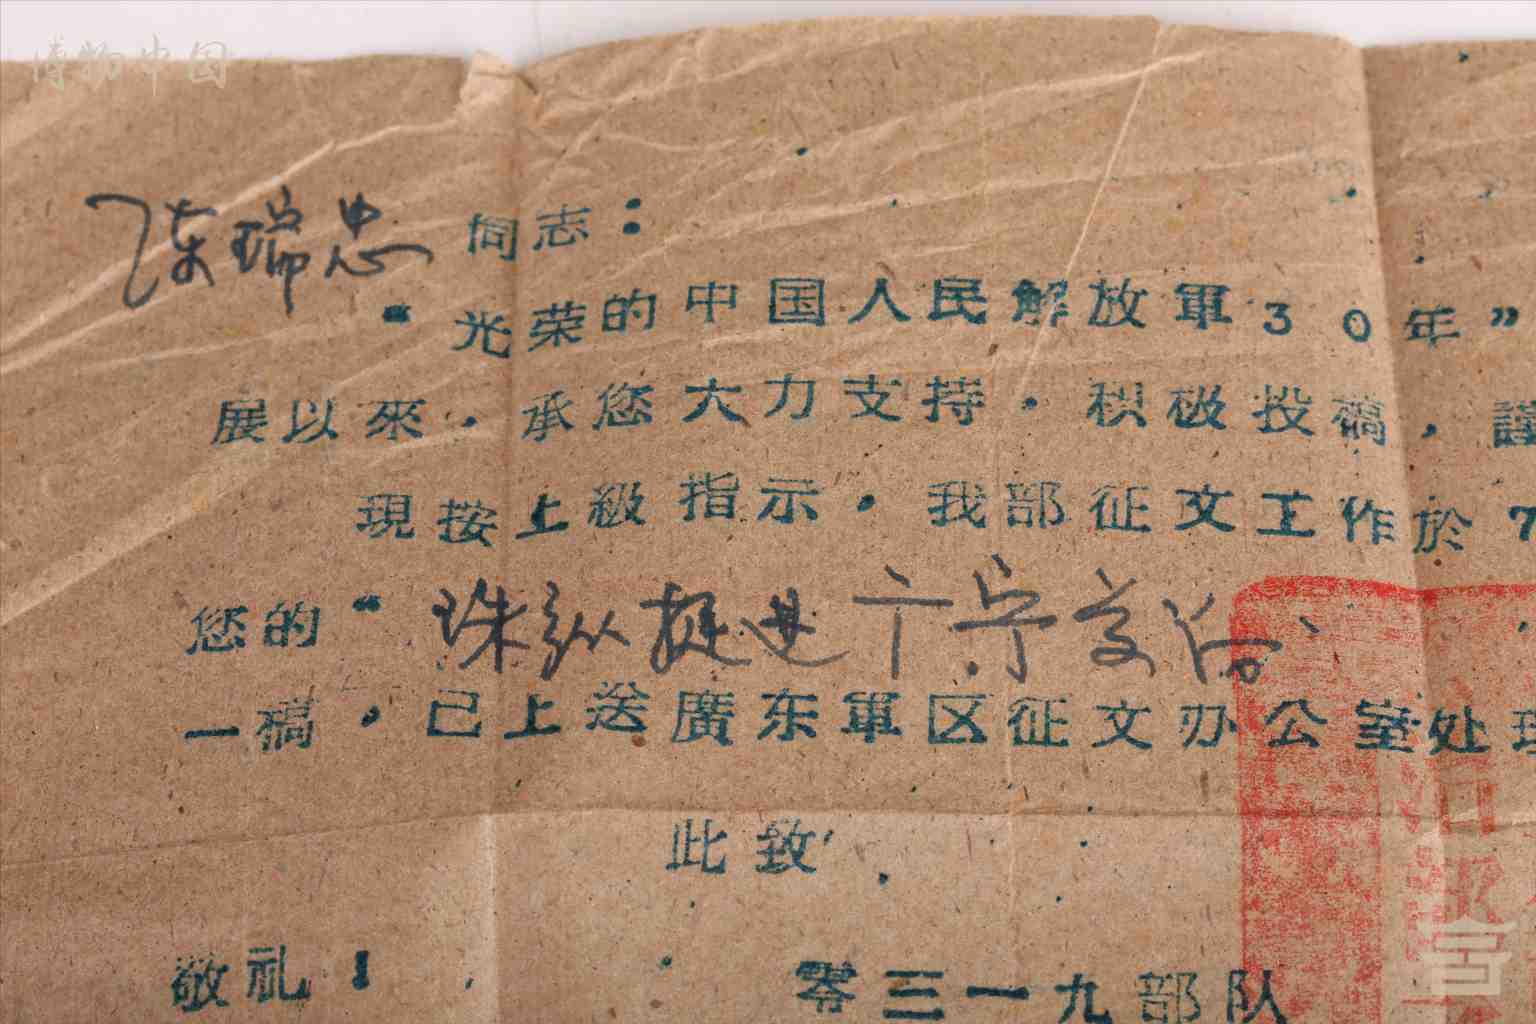 博物中国
陈瑞忠同志：
“光荣的中国人民解放軍30年”
展以來，承您大力支持，积极投稿，謹
現按上級指示，我部征文工作於7
您的“珠纵挺进广宁
一稿，已上送廣东軍区征文办公室处理
此致
敬礼！
零三一九部队